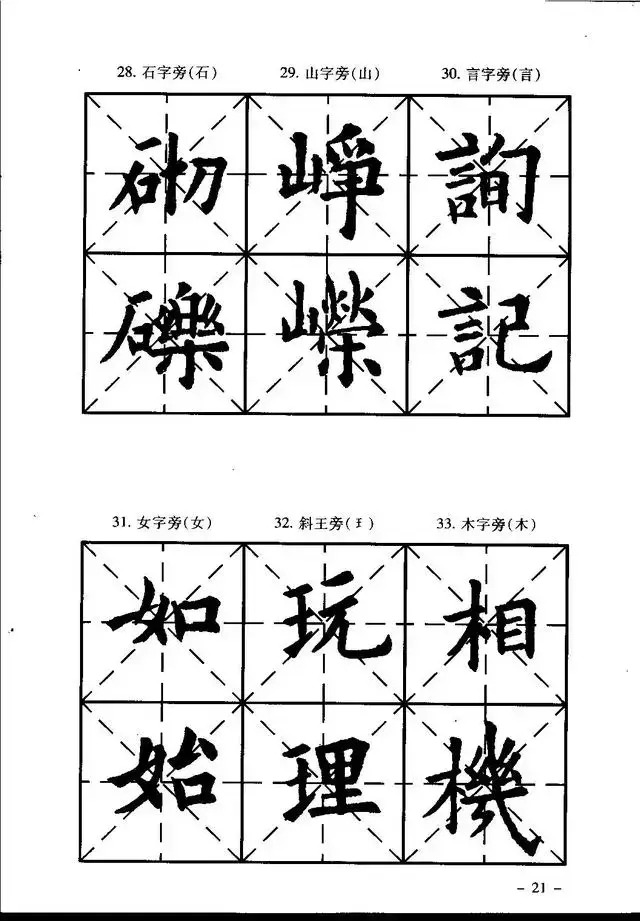 28. 石字旁(石) 29. 山字旁(山) 30. 言字旁(言)
砌 崢 詢
礫 嶸 記
31. 女字旁(女) 32. 斜王旁(𤣩) 33. 木字旁(木)
如 玩 相
始 理 機
- 21 -